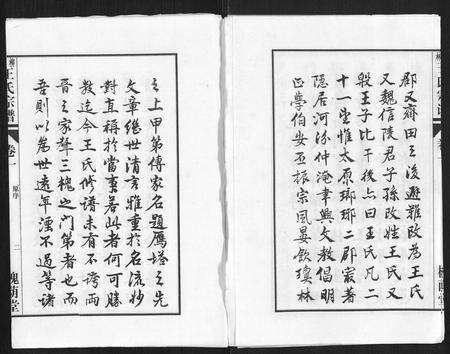 郡又齊田之後避難改為王氏
又魏信陵君子孫改姓王氏又
殷王子比干後亦曰王氏凡二
十一望惟太原瑯琊二郡最著
隱居河汾仲淹聿興文教倡明
正學伯安丕振宗風晏飲瓊林
之上甲第傳家名題雁塔之先
文章继世清言雅重於名流妙
對直稱於當事若此者何可勝
數迄今王氏修譜未有不誇兩
晉之家聲三槐之门第者也而
吾則以為世遠年湮不過等諸
王氏宗譜
卷一
原序
二
槐蔭堂